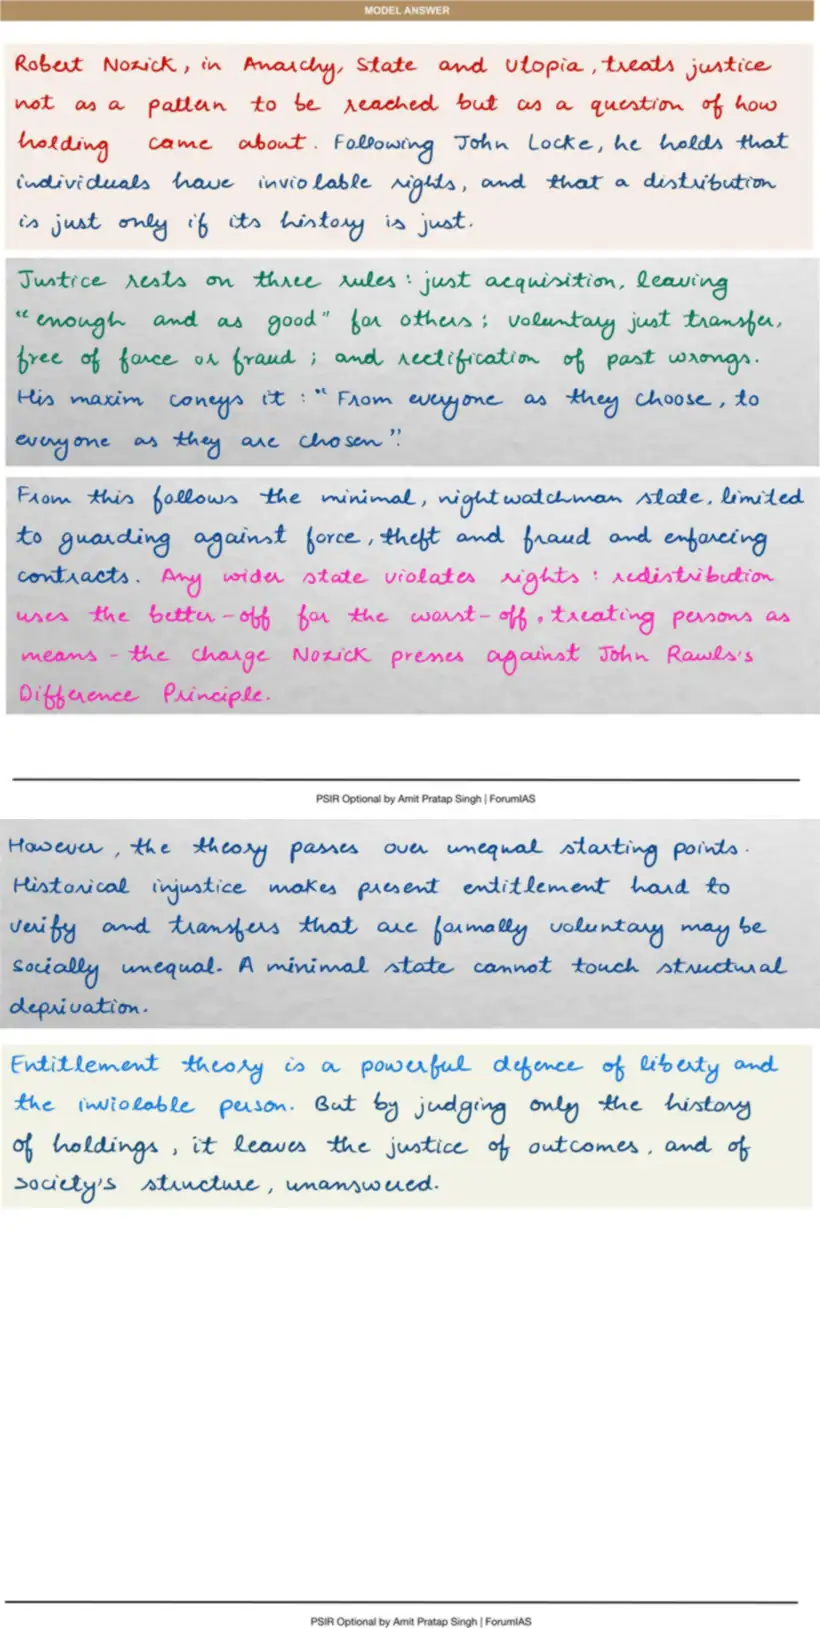 MODEL ANSWER
Robert Nozick, in Anarchy, State and Utopia, treats justice
not as a pattern to be reached but as a question of how
holding came about. Following John Locke, he holds that
individuals have inviolable rights, and that a distribution
is just only if its history is just.
Justice rests on three rules: just acquisition, leaving
"enough and as good" for others; voluntary just transfer,
free of force or fraud; and rectification of past wrongs.
His maxim coneys it: "From everyone as they choose, to
everyone as they are chosen".
From this follows the minimal, nightwatchman state, limited
to guarding against force, theft and fraud and enforcing
contracts. Any wider state violates rights: redistribution
uses the better-off for the worst-off, treating persons as
means - the charge Nozick presses against John Rawls's
Difference Principle.
PSIR Optional by Amit Pratap Singh | ForumIAS
However, the theory passes over unequal starting points.
Historical injustice makes present entitlement hard to
verify and transfers that are formally voluntary may be
socially unequal. A minimal state cannot touch structural
deprivation.
Entitlement theory is a powerful defence of liberty and
the inviolable person. But by judging only the history
of holdings, it leaves the justice of outcomes, and of
society's structure, unanswered.
PSIR Optional by Amit Pratap Singh | ForumIAS